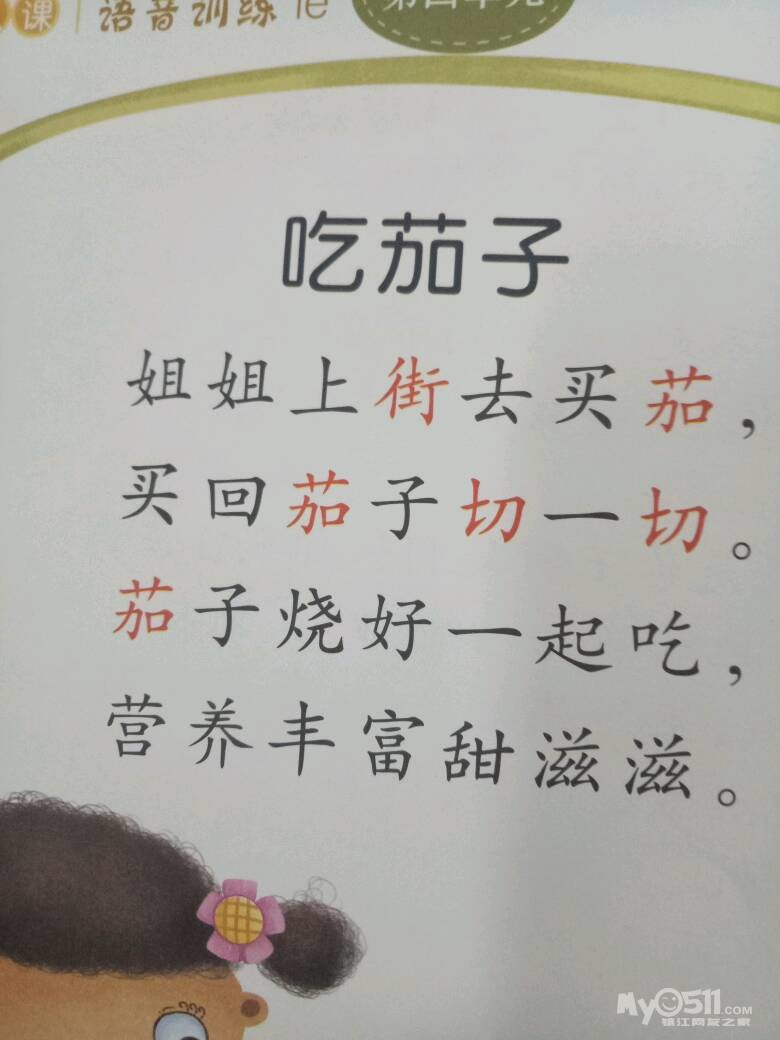 课 语音训练 ie
第四单元
吃茄子
姐姐上街去买茄，
买回茄子切一切。
茄子烧好一起吃，
营养丰富甜滋滋。
My0511.COM
镇江网友之家